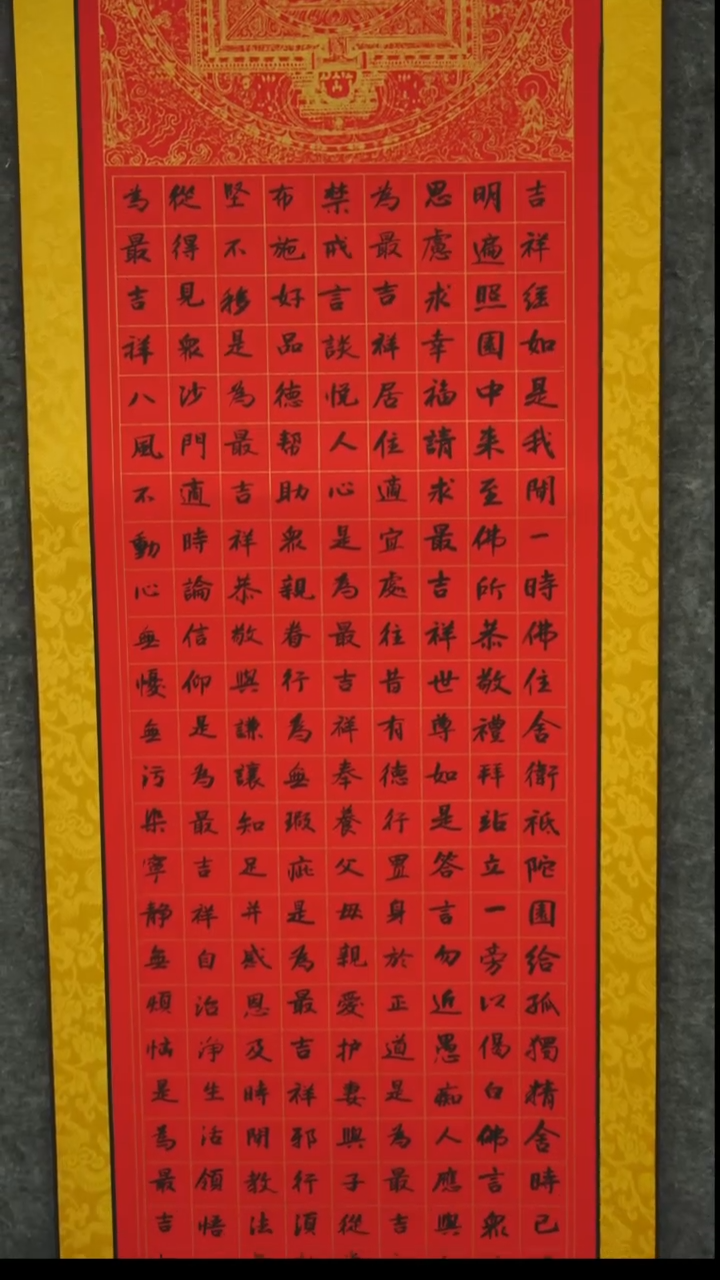 吉祥經如是我聞一時佛住舍衛祇陀園給孤獨精舍時已
明遍照園中来至佛所恭敬禮拜站立一旁以偈白佛言衆
思慮求幸福請求最吉祥世尊如是答言勿近愚痴人應與
為最吉祥居住適宜處往昔有德行置身於正道是為最吉
禁戒言談悦人心是為最吉祥奉養父母親愛护妻與子從
布施好品德帮助衆親眷行為無瑕疵是為最吉祥邪行須
堅不移是為最吉祥恭敬與謙讓知足并感恩及時聞教法
從得見衆沙門適時論信仰是為最吉祥自治净生活領悟
為最吉祥八風不動心無憂無污染寧静無煩惱是為最吉